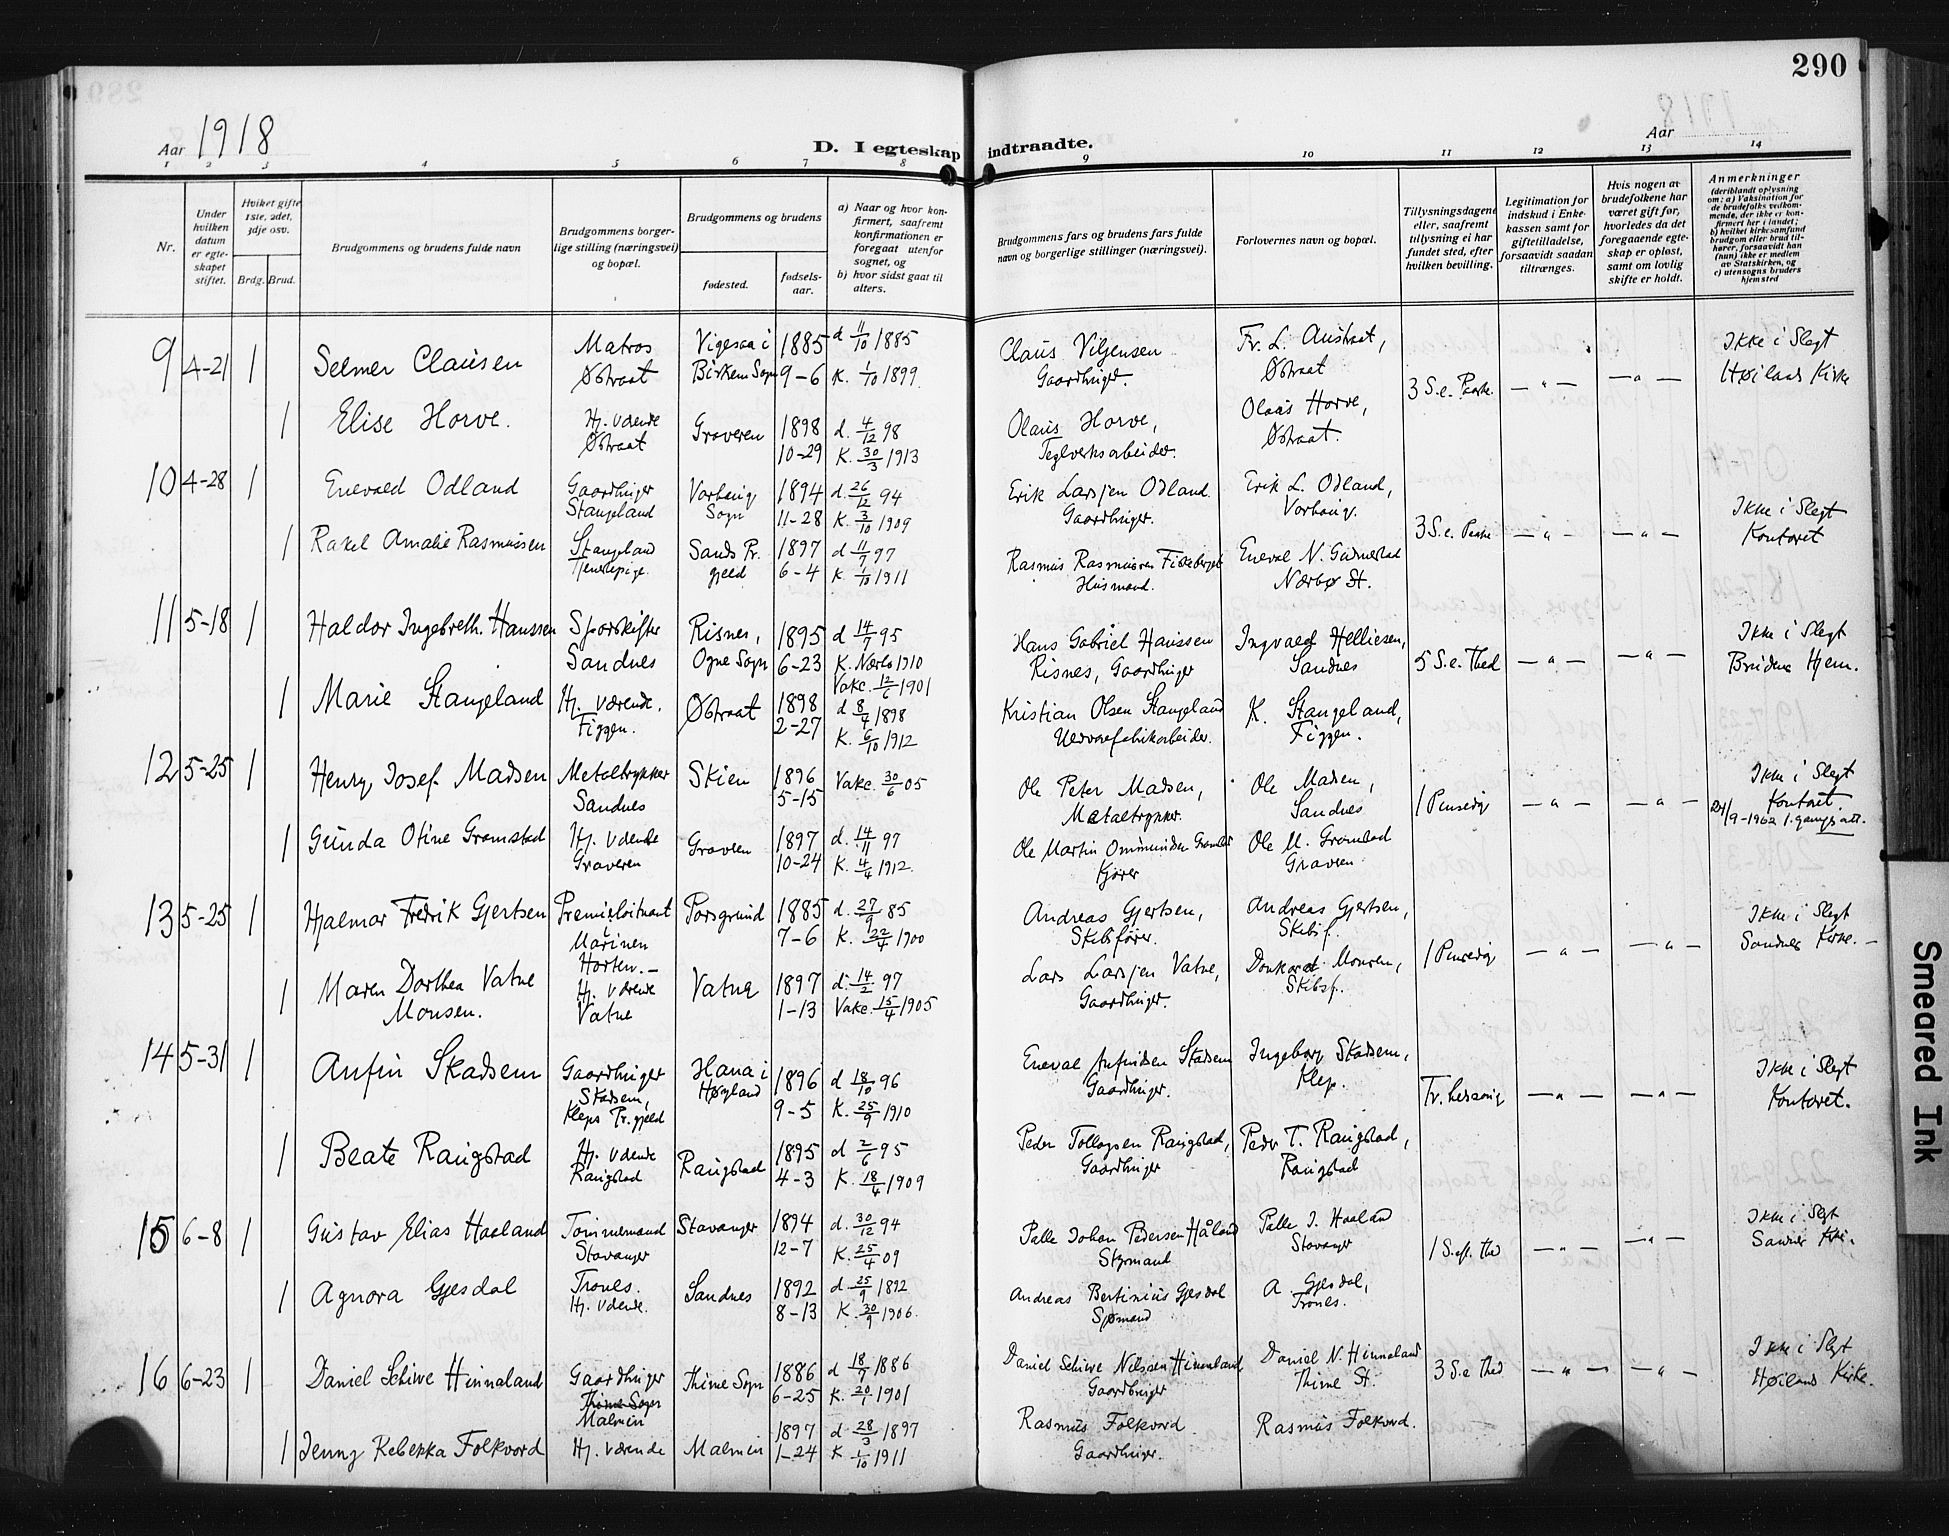 290
Aar 1918
D. I egteskap indtraadte.
Aar
1 2 3 4 5 6 7 8 9 10 11 12 13 14
Nr.
Under hvilken datum er egteskapet stiftet.
Hvilket gifte 1ste, 2det, 3dje osv.
Brdg. Brud.
Brudgommens og brudens fulde navn
Brudgommens borgerlige stilling (næringsvei) og bopæl.
Brudgommens og brudens
fødested.
fødselsaar.
a) Naar og hvor konfirmert, saafremt konfirmationen er foregaat utenfor sognet, og
b) hvor sidst gaat til alters.
Brudgommens fars og brudens fars fulde navn og borgerlige stillinger (næringsvei).
Forlovernes navn og bopæl.
Tillysningsdagene eller, saafremt tillysning ei har fundet sted, efter hvilken bevilling.
Legitimation for indskud i Enkekassen samt for giftetilladelse, forsaavidt saadan tiltrænges.
Hvis nogen av brudefolkene har været gift før, hvorledes da det foregaaende egteskap er opløst, samt om lovlig skifte er holdt.
Anmerkninger (deriblandt oplysning om: a) Vaksination for de brudefolks vedkommende, der ikke er konfirmert her i landet; b) hvilket kirkesamfund brudgom eller brud tilhører, forsaavidt han (hun) ikke er medlem av Statskirken, og c) utensogns bruders hjemsted
9 4-21 1 Selmer Clausen Matros Østraat Vigesaa i Birkem Sogn 1885 9-6 d 11/10 1885 K. 1/10 1899. Claus Viljensen Gaardbruger. Fr. L. Austraat, Østraat 3 S. e. Paske. — " — — " — Ikke i Slegt Høilands Kirke
1 Elise Horve. Hj. værende Østraat Graveren 1898 10-29 d. 4/12 98 K. 30/3 1913 Olaus Horve, Teglverksarbeider. Olaus Horve, Østraat.
10 4-28 1 Enevald Odland Gaardbruger Stangeland Varhaug Sogn 1894 11-28 d. 26/12 94 K. 3/10 1909 Erik Larsen Odland. Gaardbruger. Erik L. Odland, Varhaug. 3 S. e. Paske — " — — " — Ikke i Slegt Kontoret
1 Rakel Amalie Rasmussen Stangeland Tjenestepige. Sands Pr. gjeld 1897 6-4 d 11/7 97 K. 1/10 1911 Rasmus Rasmussen Fiskeberget Husmand. Eneval N. Gudmestad Nærbø St.
11 5-18 1 Haldor Ingebreth. Hanssen Sporskifter Sandnes Risnes, Ogne Sogn 1895 6-23 d 14/7 95 K. Nærbø 1910 Vakc. 12/6 1901 Hans Gabriel Hanssen Risnes, Gaardbruger Ingvald Helliesen, Sandnes 5 S. e. Paske — " — — " — Ikke i Slegt Brudens Hjem.
1 Marie Stangeland Hj. værende. Figgen. Østraat 1898 2-27 d 8/4 1898 K. 6/10 1912 Kristian Olsen Stangeland Uldvarefabrikarbeider. K. Stangeland, Figgen.
12 5-25 1 Henry Josef Madsen Metaltrykker Sandnes Skien 1896 5-15 Vakc. 30/6 05 Ole Peter Madsen, Metaltrykker. Ole Madsen, Sandnes 1 Pinsedag — " — — " — Ikke i Slegt Kontoret. /9-1962 1. gangs att.
1 Gunda Otine Gramstad Hj. værende Graveren Graveren 1897 10-24 d. 14/11 97 K. 4/4 1912. Ole Martin Ommundsen Gramstad Kjører Ole M. Gramstad Graveren
13 5-25 1 Hjalmar Fredrik Gjertsen Premierløitnant i Marinen Horten. — Porsgrund 1885 7-6 d. 27/9 85 K. 22/4 1900 Andreas Gjertsen, Skibsfører. Andreas Gjertsen, Skibsf. 1 Pinsedag — " — — " — Ikke i Slegt Sandnes Kirke. —
1 Maren Dorthea Vatne Monsen. Hj. værende Vatne Vatne 1897 1-13 d. 14/2 97 Vakc. 15/4 1905 Lars Larsen Vatne, Gaardbruger. Monsen, Skibsf.
14 5-31 1 Anfin Skadsem Gaardbruger Skadsem, Kleps Pr.gjeld Hana i Høyland 1896 9-5 d 18/10 96 K. 25/9 1910 Eneval Anfindsen Skadsem Gaardbruger. Ingeborg Skadsem, Klep. — " — — " — Ikke i Slegt Kontoret.
1 Beate Raugstad Hj. værende Raugstad Raugstad 1895 4-3 d 2/6 95 K. 18/4 1909 Peder Tollagsen Raugstad, Gaardbruger Peder T. Raugstad, Raugstad
15 6-8 1 Gustav Elias Haaland Tømmermand Stavanger Stavanger 1894 12-7 d. 30/12 94 K. 25/4 09 Palle Johan Pedersen Håland Styrmand Palle J. Haaland Stavanger 1 S. eft. — " — — " — Ikke i Slegt Sandnes Kirke.
1 Agnora Gjesdal Trones. Hj. værende. Sandnes 1892 8-13 d. 25/9 1892 K. 30/9 1906. Andreas Bertinius Gjesdal Sjømand A Gjesdal, Trones.
16 6-23 1 Daniel Schiwe Hinnaland Gaardbruger Thime Sogn Malmin Thime Sogn 1886 6-25 d 18/7 1886 K. 20/1 1901 Daniel Schiwe Nilssen Hinnaland Gaardbruger Daniel N. Hinnaland Thime St. 3 S. e — " — — " — Ikke i Slegt Høilands Kirke.
1 Jenny Rebekka Folkvord Hj. værende Malmin 1897 1-24 d 28/3 1897 K 1/10 1911 Rasmus Folkvord Gaardbruger. Rasmus Folkvord.
Smeared Ink